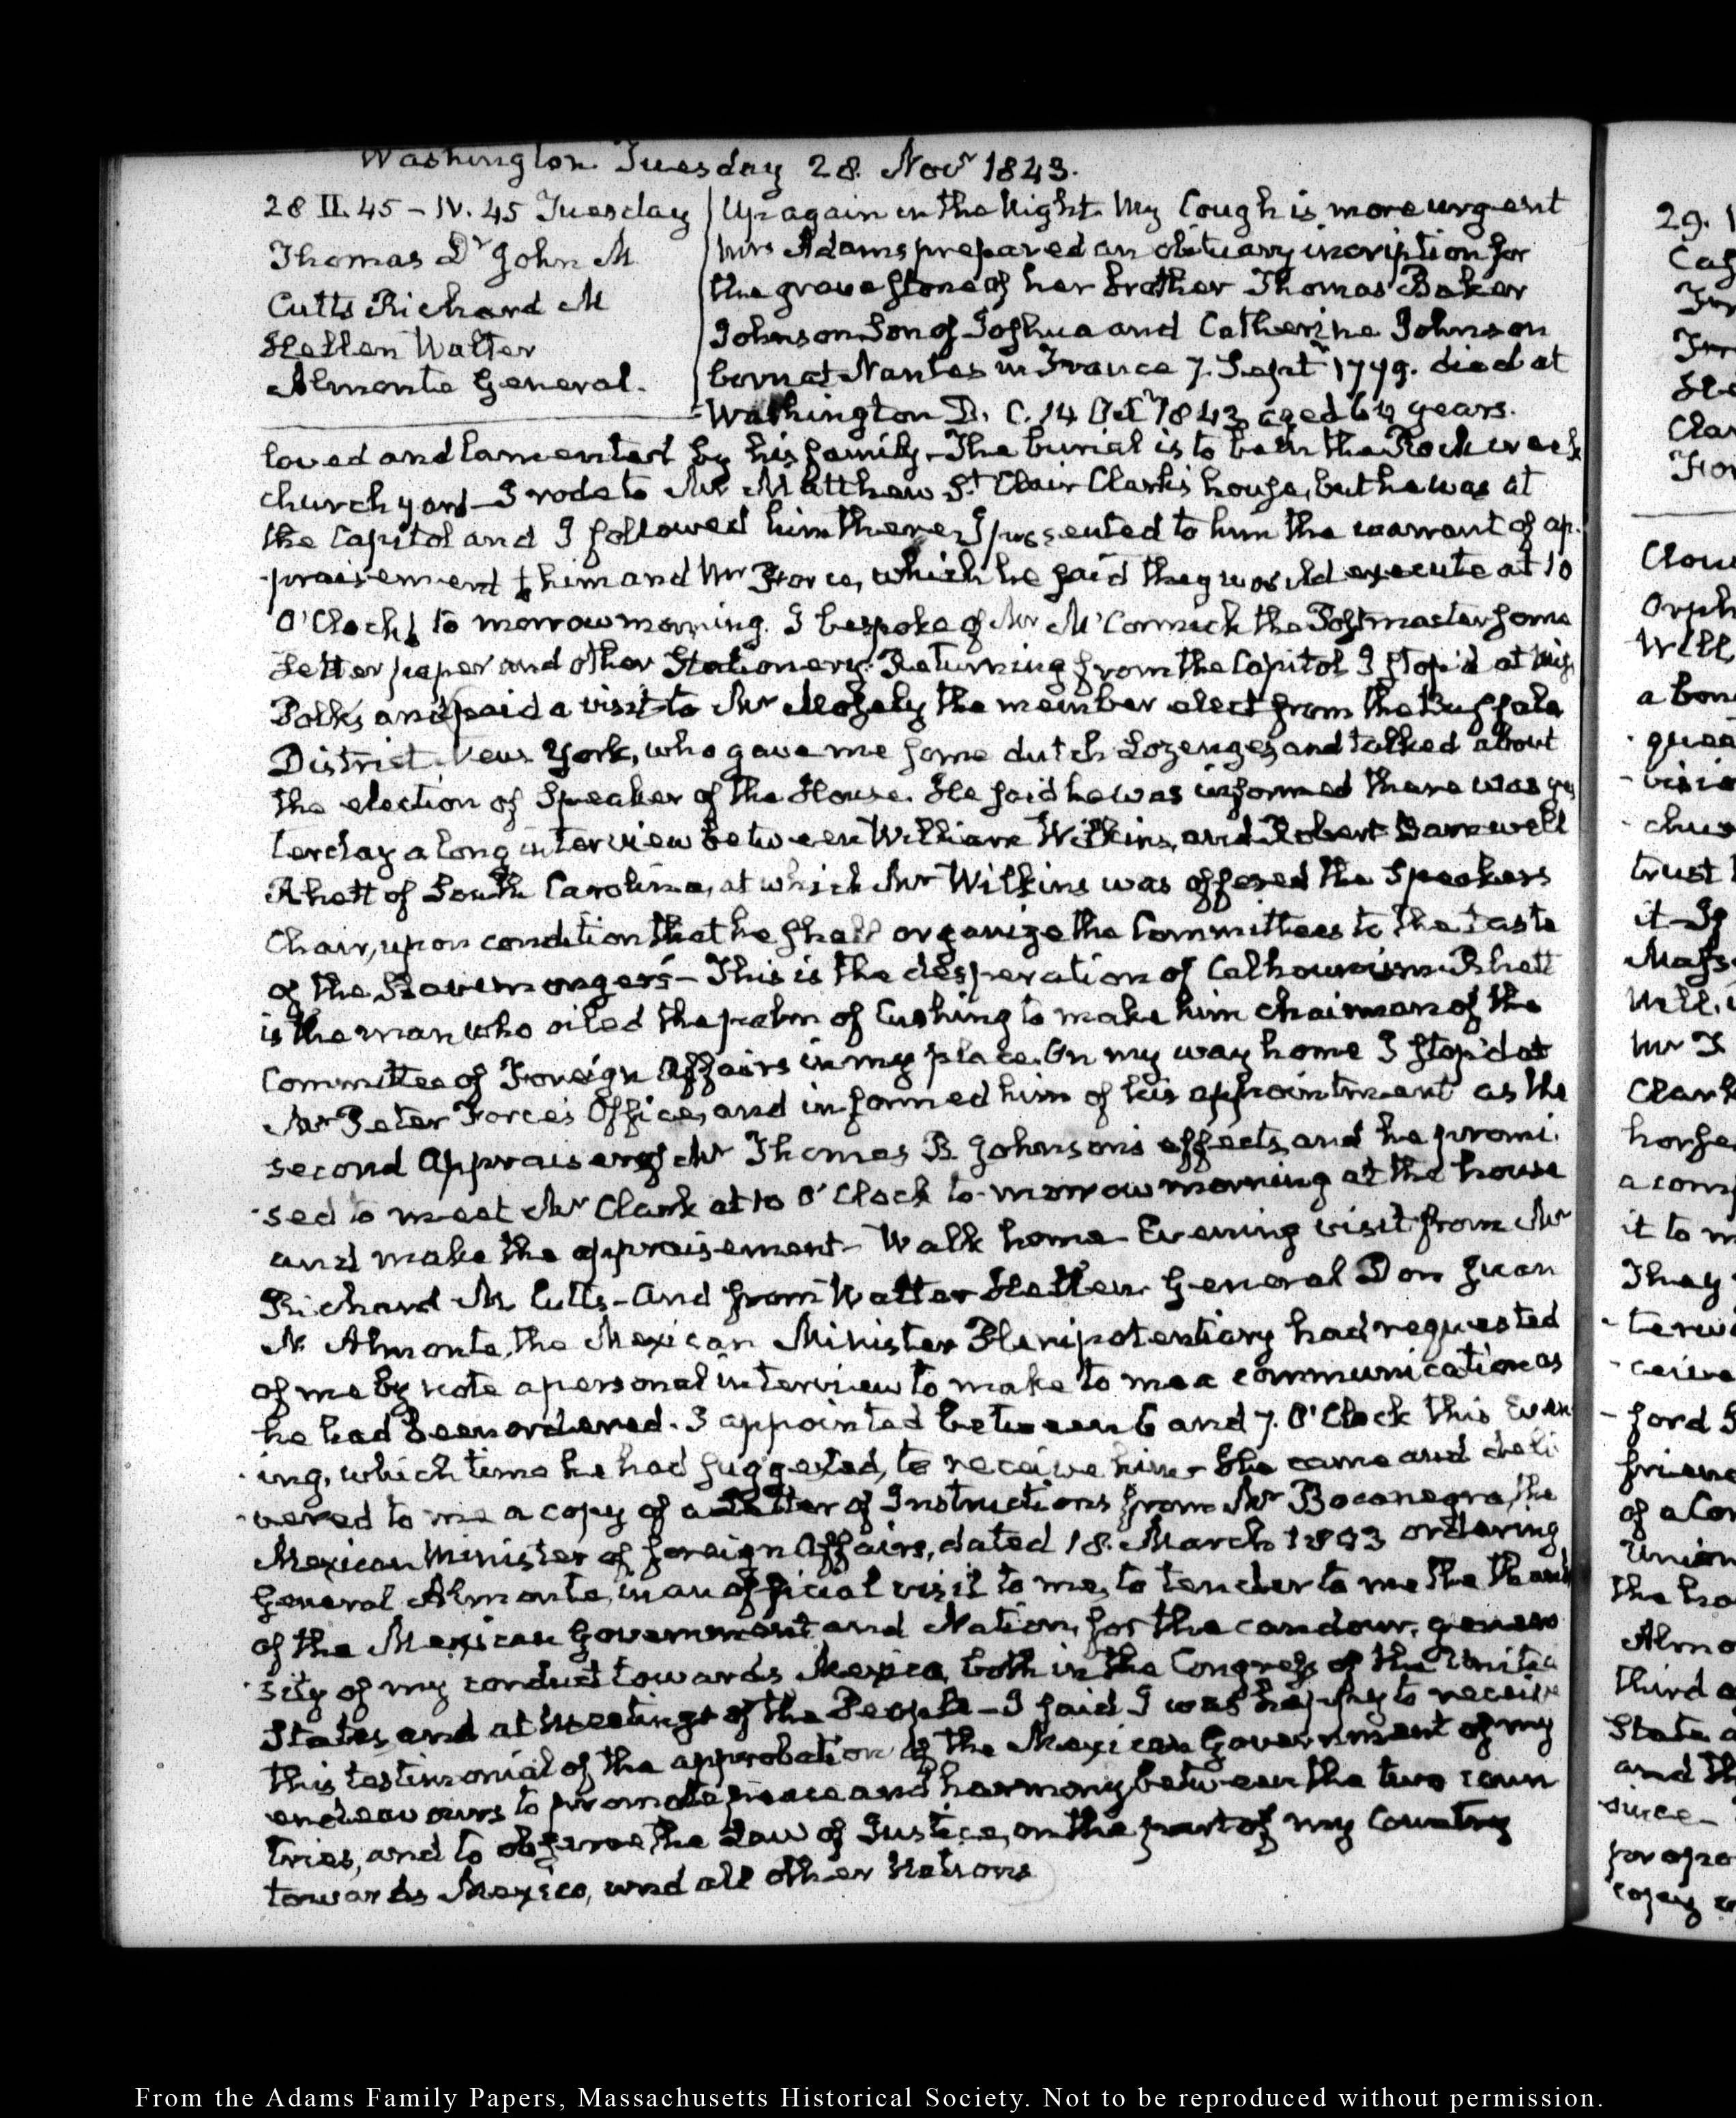 Washington Tuesday 28. Novr 1843.
28 II. 45 – IV. 45 Tuesday
Thomas Dr John M
Cutts Richard M
Hellen Walter
Almonte General.
Up again in the Night. My Cough is more urgent
Mrs Adams prepared an obituary incription for
the grave stone of her brother Thomas Baker
Johnson Son of Joshua and Catherine Johnson
born at Nantes in France 7. Septr 1779. died at
Washington D. C. 14 Octr 1843 aged 64 years.
loved and lamented by his family – The burial is to be in the Rock creek
church yard – I rode to Mr Matthew St Clair Clarke's house, but he was at
the Capitol and I followed him there, I presented to him the warrant of ap-
-praisement to him and Mr Force, which he said they would execute at 10
O'Clock to morrow morning. I bespoke of Mr McCormick the Postmaster some
Letter paper and other Stationery. Returning from the Capitol I stop'd at
Polk's and paid a visit to Mr Mosely the member elect from the Buffalo
District New York, who gave me some dutch Lozenges and talked about
the election of Speaker of the House. He said he was informed there was yes
terday a long interview between William Wilkins, and Robert Barnwell
Rhett of South Carolina, at which Mr Wilkins was offered the Speakers
Chair, upon condition that he shall organize the Committees to the taste
of the Slavemongers – This is the desperation of Calhounism – Rhett
is the man who oiled the palm of Cushing to make him chairman of the
Committee of Foreign Affairs in my place. On my way home I stop'd at
Mr Peter Force's Office, and informed him of his appointment as the
second Appraiser of Mr Thomas B Johnson's effects, and he promi.
-sed to meet Mr Clark at 10 O'Clock to-morrow morning at the house
and make the appraisement – Walk home – Evening visit from Mr
Richard M Cutts – and from Walter Hellen. General Don Juan
N. Almonte, the Mexican Minister Plenipotentiary had requested
of me by note a personal interview to make to me a communication as
he had been ordered. I appointed between 6 and 7. O'Clock this Even
-ing, which time he had suggested, to receive him – He came and deli
-vered to me a copy of a Letter of Instructions from Mr Bocanegra, the
Mexican Minister of foreign Affairs, dated 18. March 1843 ordering
General Almonte, in an official visit to me, to tender to me the thanks
of the Mexican Government and Nation, for the candour, genero
-sity of my conduct towards Mexico, both in the Congress of the United
States, and at Meetings of the People – I said I was happy to receive
this testimonial of the approbation of the Mexican Government of my
endeavours to promote peace and harmony between the two coun
tries, and to observe the Law of Justice, on the part of my Country
towards Mexico, and all other Nations
29.
From the Adams Family Papers, Massachusetts Historical Society. Not to be reproduced without permission.